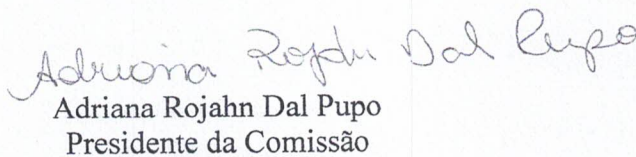 Adriana Rojahn Dal Pupo
Adriana Rojahn Dal Pupo
Presidente da Comissão